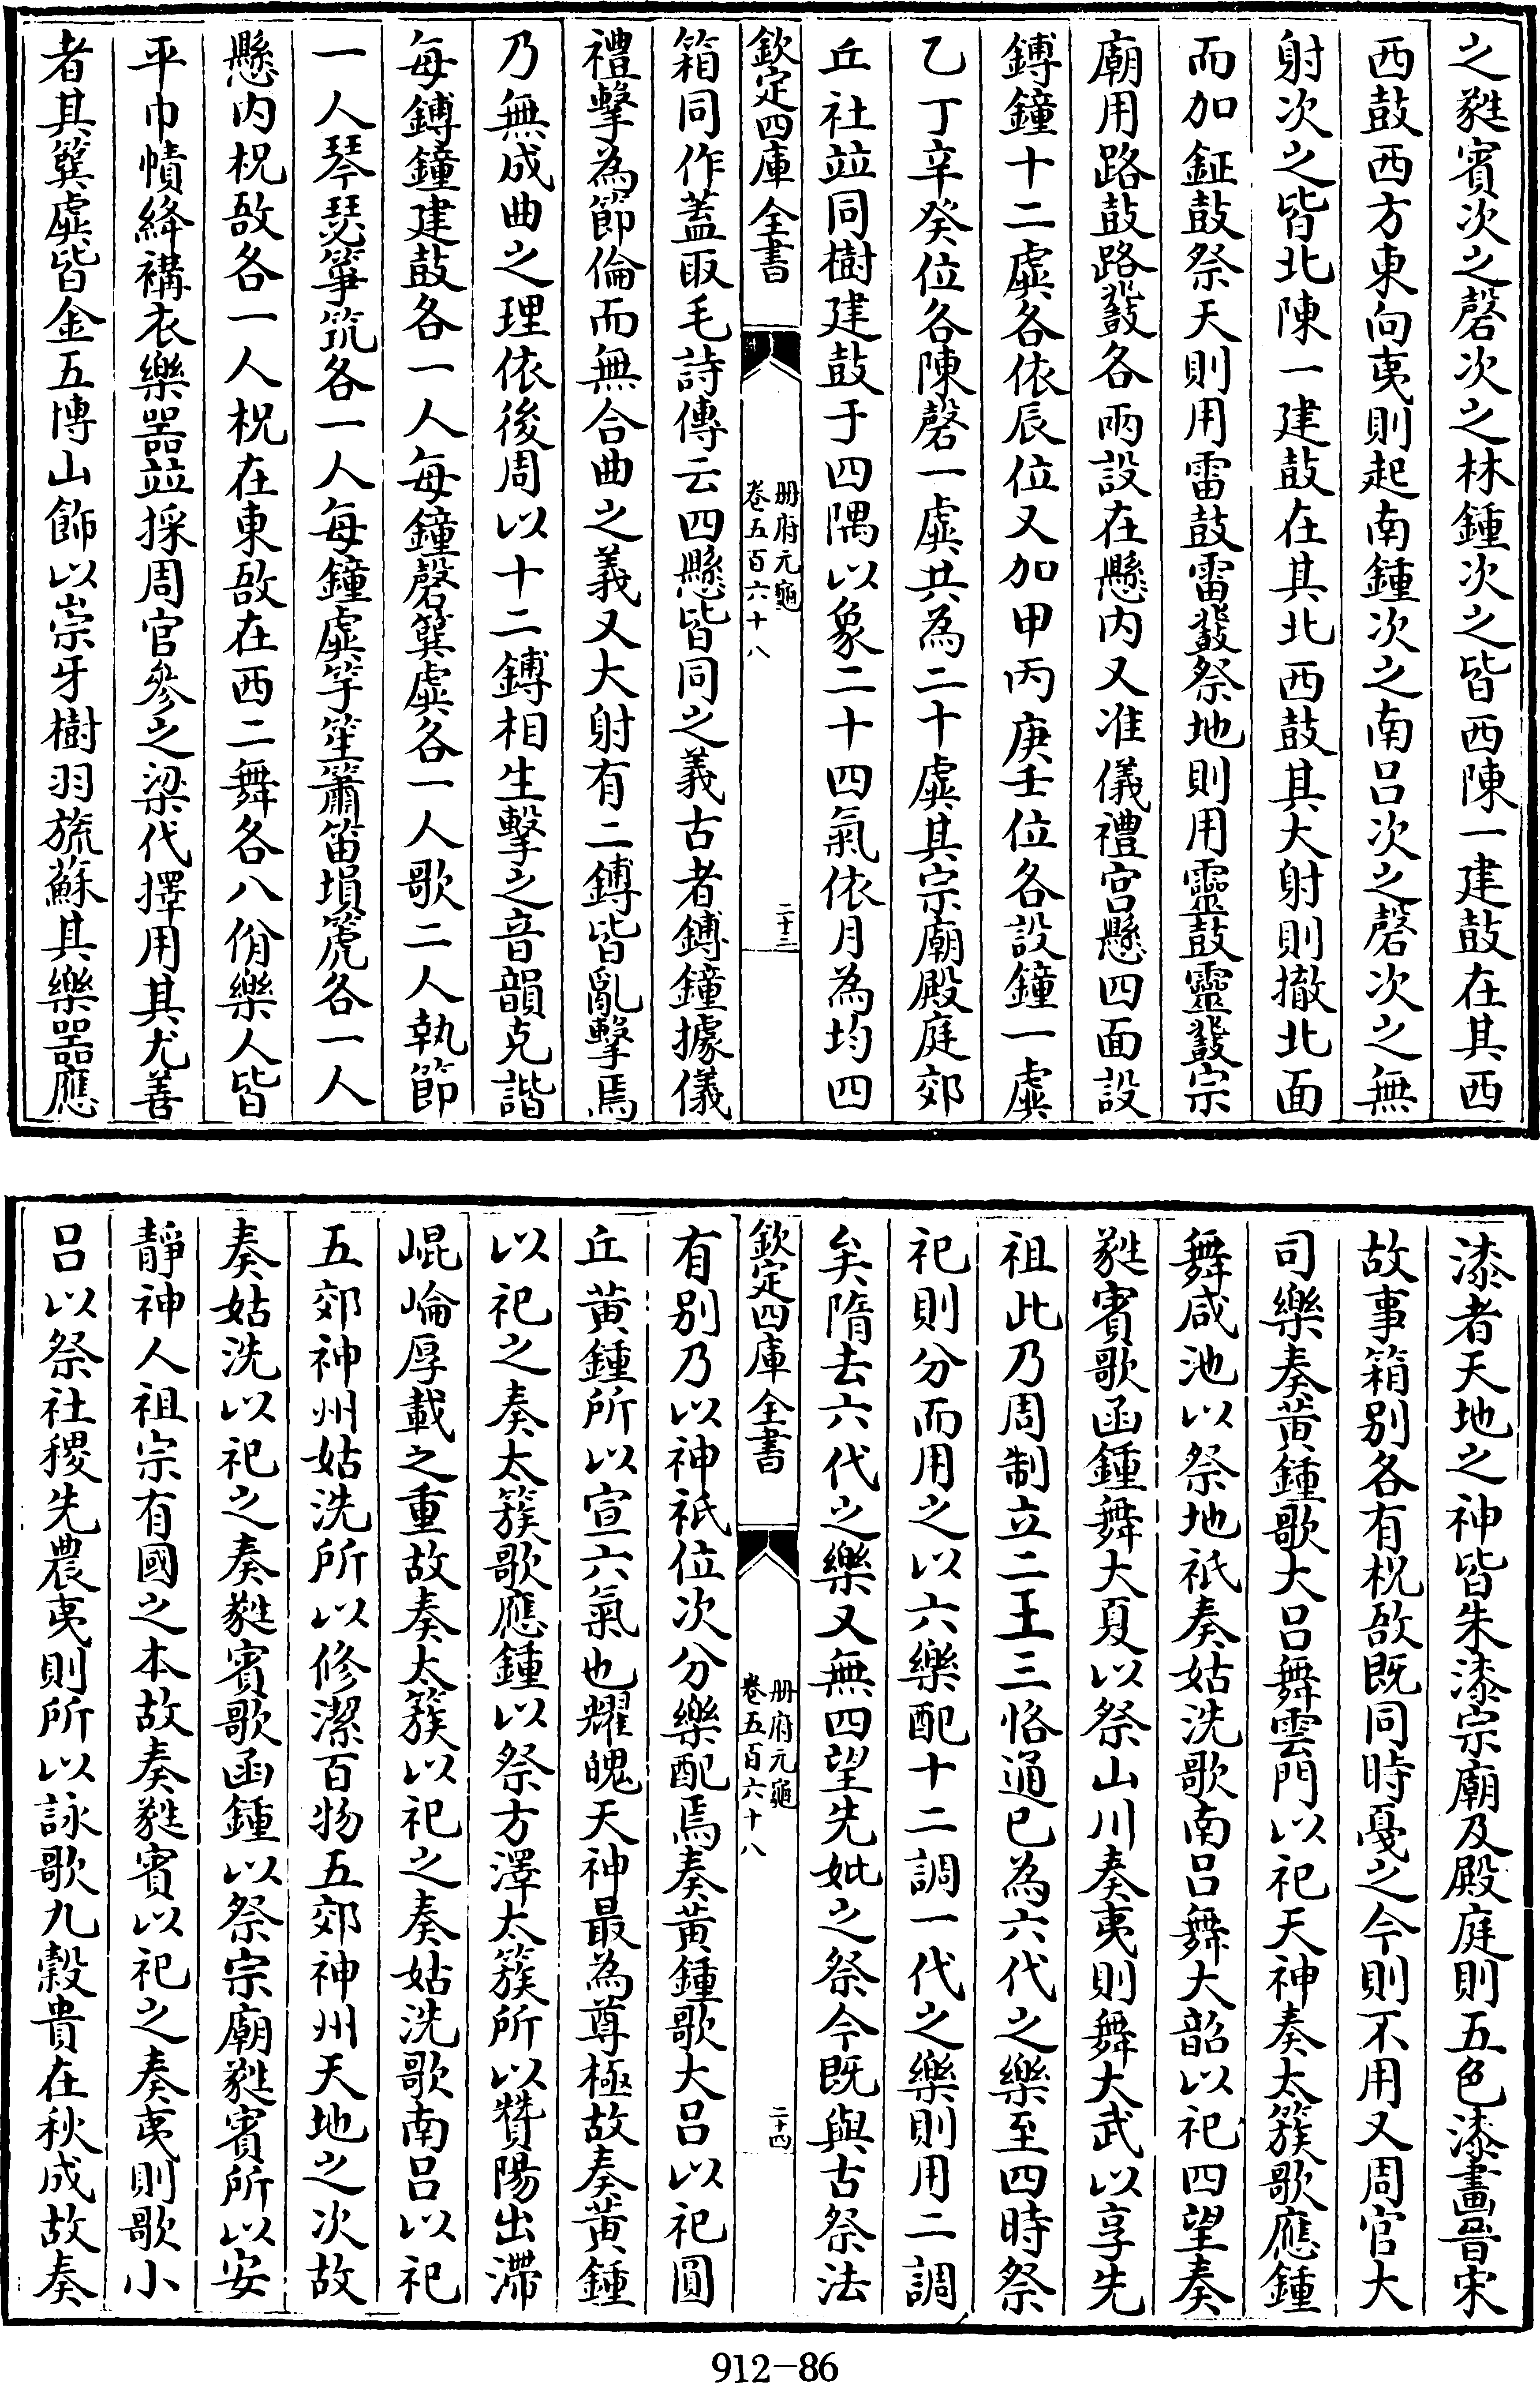 之蕤賓次之磬次之林鍾次之皆西陳一建鼓在其西
西鼓西方東向夷則起南鍾次之南呂次之磬次之無
射次之皆北陳一建鼓在其北西鼓其大射則撤北面
而加鉦鼓祭天則用雷鼓雷鼗祭地則用靈鼓靈鼗宗
廟用路鼓路鼗各兩設在懸内又准儀禮宫懸四面設
鎛鐘十二虡各依辰位又加甲丙庚壬位各設鐘一虡
乙丁辛癸位各陳磬一虡共為二十虡其宗廟殿庭郊
丘社並同樹建鼓于四隅以象二十四氣依月為均四
欽定四庫全書
册府元龜
卷五百六十八
二十三
箱同作蓋取毛詩傳云四懸皆同之義古者鎛鐘據儀
禮擊為節倫而無合曲之義又大射有二鎛皆亂擊焉
乃無成曲之理依後周以十二鎛相生擊之音韻克諧
每鎛鐘建鼓各一人每鐘磬簨虡各一人歌二人執節
一人琴瑟箏筑各一人每鐘虡竽笙簫笛塤箎各一人
懸内柷敔各一人柷在東敔在西二舞各八佾樂人皆
平巾幘絳褠衣樂噐並採周官參之梁代擇用其尤善
者其簨虡皆金五博山飾以崇牙樹羽旒蘇其樂噐應
漆者天地之神皆朱漆宗廟及殿庭則五色漆畫晉宋
故事箱别各有柷敔既同時戞之今則不用又周官大
司樂奏黄鍾歌大呂舞雲門以祀天神奏太簇歌應鍾
舞咸池以祭地祇奏姑洗歌南呂舞大韶以祀四望奏
蕤賓歌函鍾舞大夏以祭山川奏夷則舞大武以享先
祖此乃周制立二王三恪通已為六代之樂至四時祭
祀則分而用之以六樂配十二調一代之樂則用二調
矣隋去六代之樂又無四望先妣之祭今既與古祭法
欽定四庫全書
册府元龜
卷五百六十八
二十四
有别乃以神祇位次分樂配焉奏黄鍾歌大呂以祀圓
丘黄鍾所以宣六氣也耀魄天神最為尊極故奏黄鍾
以祀之奏太簇歌應鍾以祭方澤太簇所以贊陽出滯
崐崘厚載之重故奏太簇以祀之奏姑洗歌南呂以祀
五郊神州姑洗所以修潔百物五郊神州天地之次故
奏姑洗以祀之奏蕤賓歌函鍾以祭宗廟蕤賓所以安
靜神人祖宗有國之本故奏蕤賓以祀之奏夷則歌小
呂以祭社稷先農夷則所以詠歌九穀貴在秋成故奏
912-86